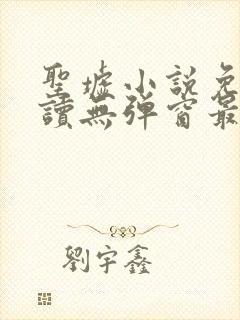 聖墟小說免
讀無彈窗最
劉宇鑫